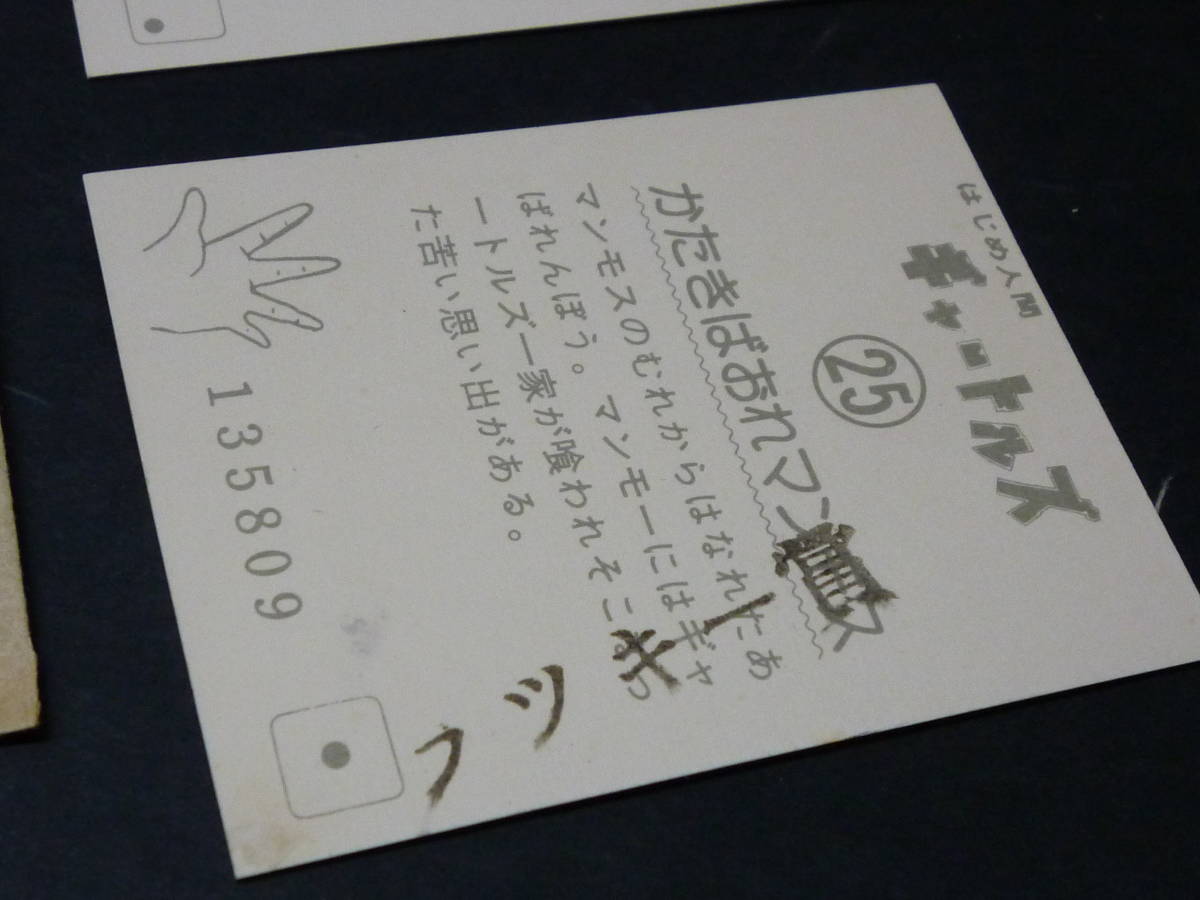 はじめ人間
ギャートルズ
25
かたきばおれマン
マンモスのむれからはなれたあ
ばれんぼう。マンモーにはギャ
ートルズ一家が喰われそこなっ
た苦い思い出がある。
135809